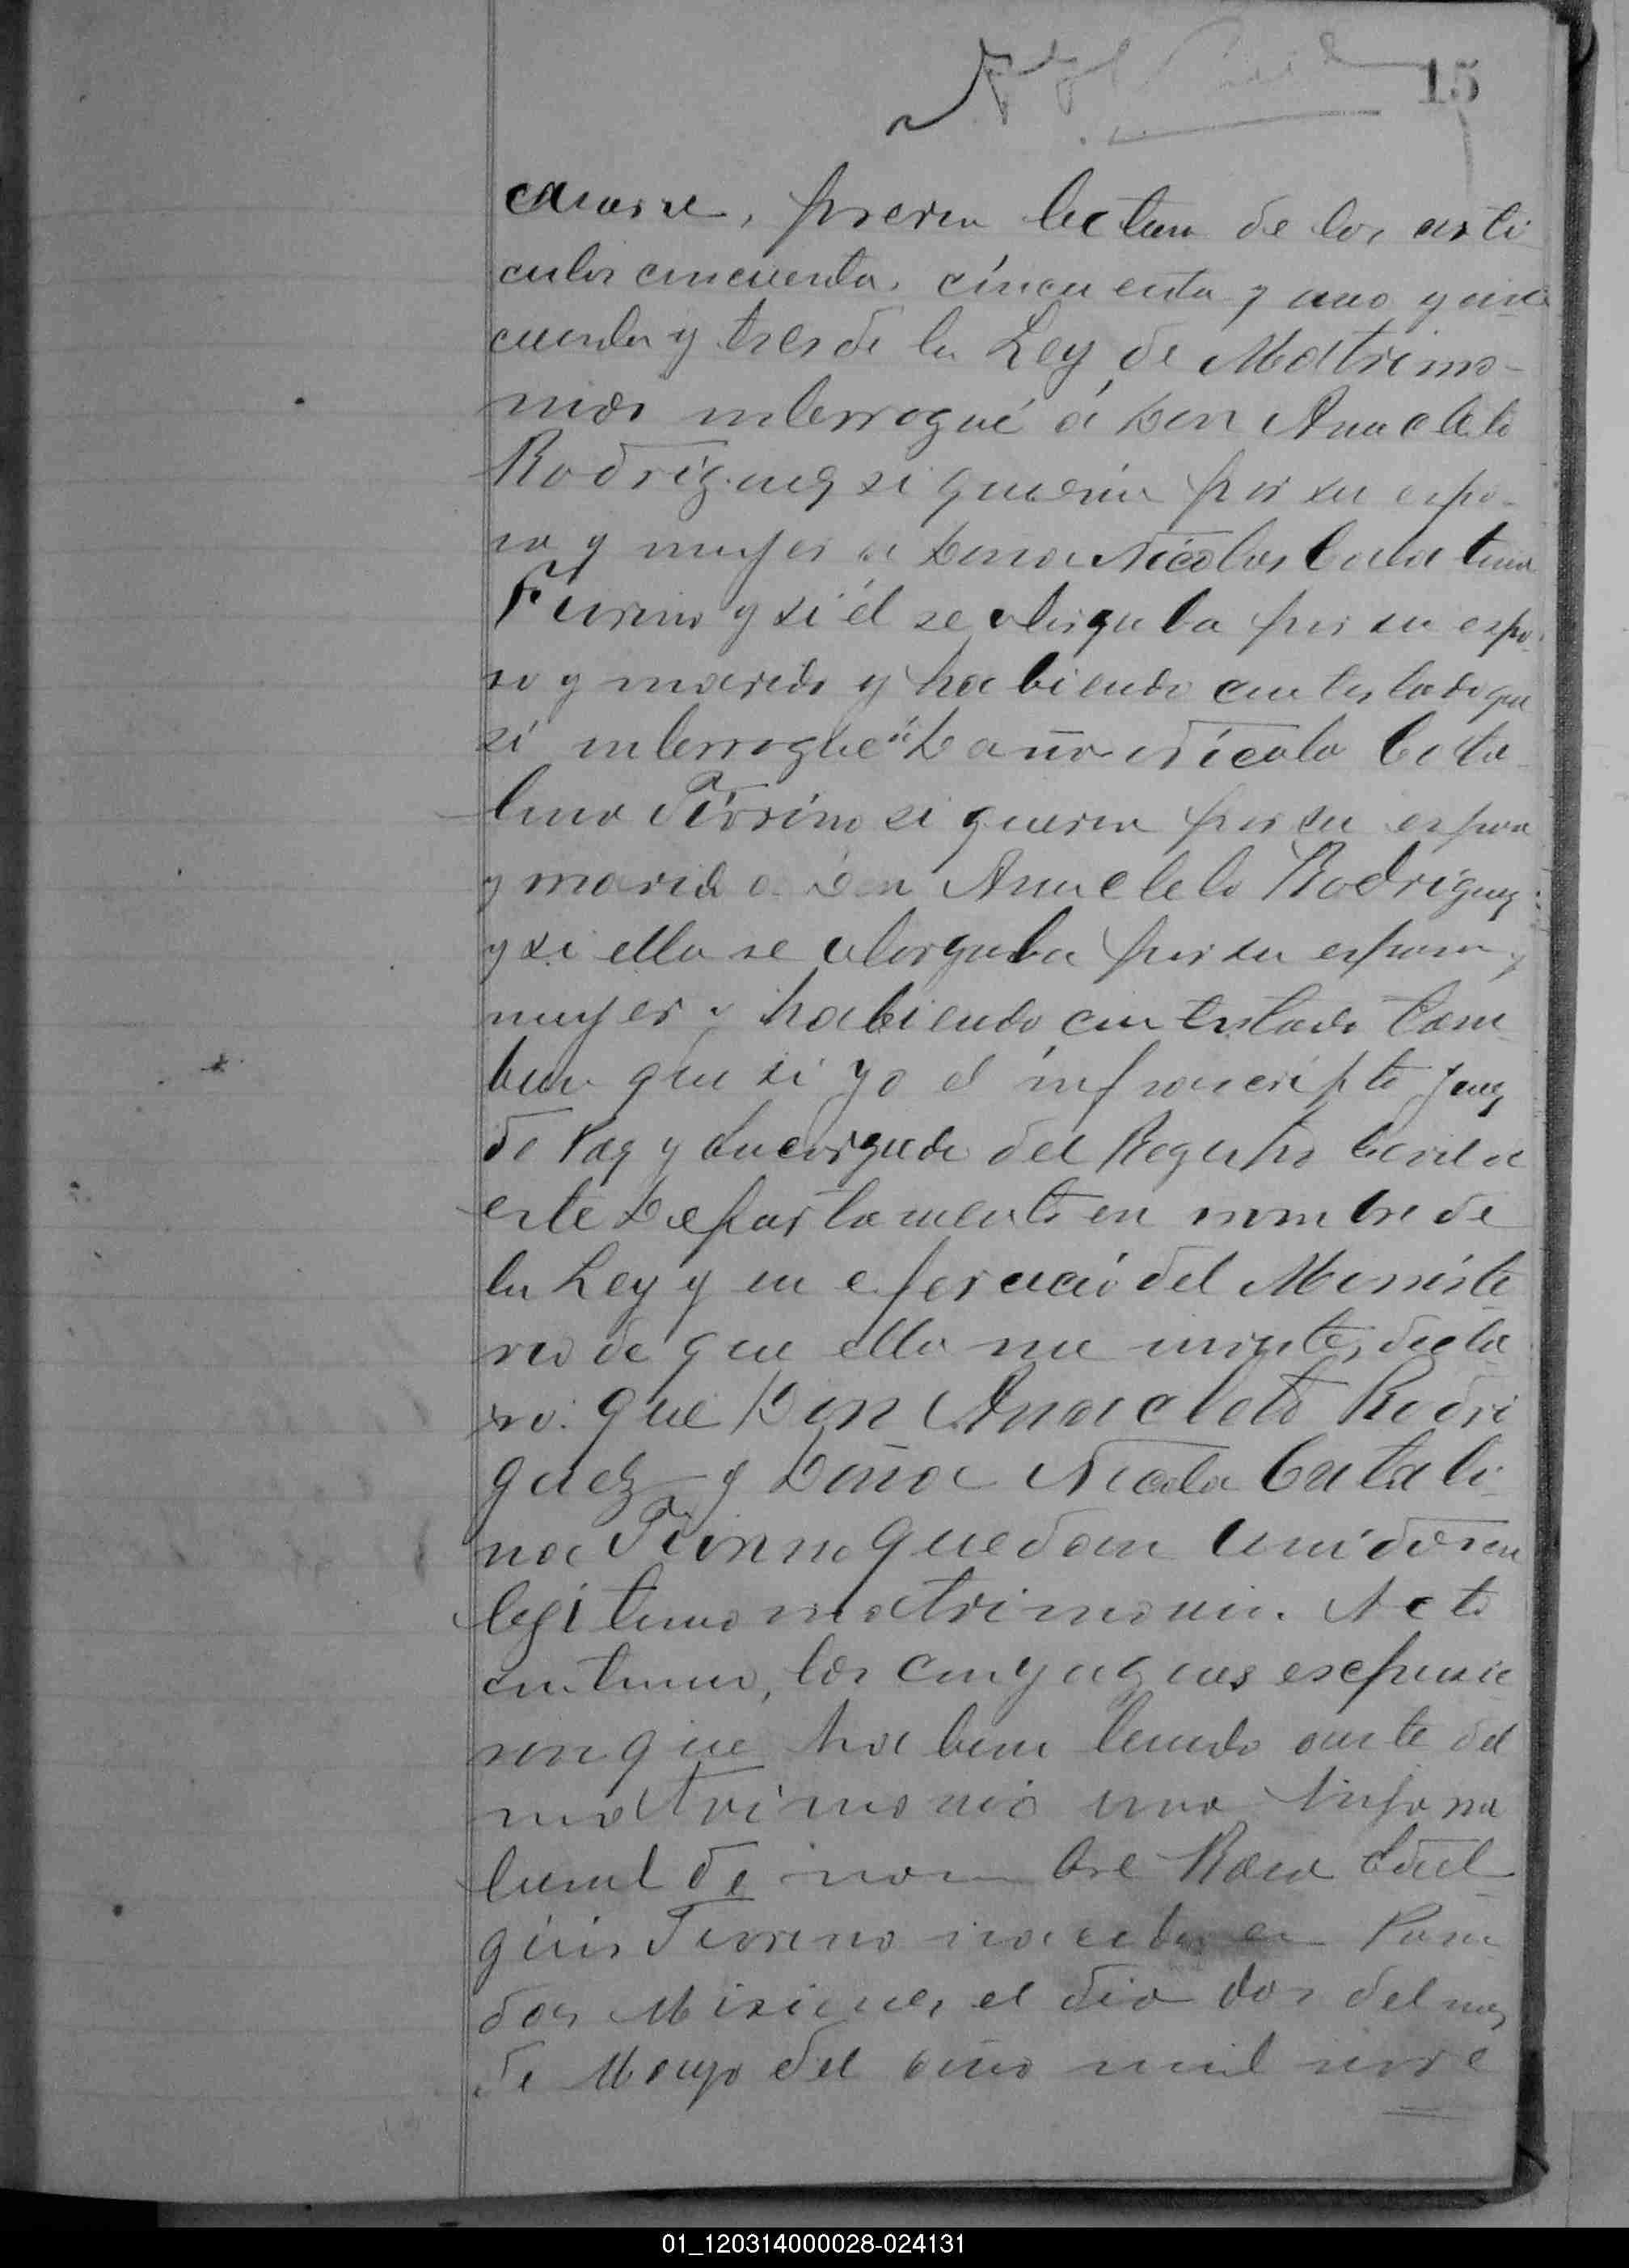 15
casarse, previa lectura de los arti
culos cincuenta, cincuenta y uno y cin
cuenta y tres de la Ley de Matrimo-
nios interrogué á Don Anacleto
Rodriguez si queria por su espo-
sa y mujer a Dona Nicolas Catalina
y si él se otorgaba por su espo-
so y marido y habiendo contestado que
si interrogué á Doña Nicola Cata-
lina Firrino si queria por su esposo
y marido a Don Anacleto Rodriguez
y si ella se otorgaba por su esposa y
mujer y habiendo contestado tam
bien que si yo el infrascripto Juez
de Paz y Encargado del Registro Civil de
este Departamento en nombre de
la Ley y en ejercicio del Ministe
rio de que ella me inviste, decla
ro: que Don Anacleto Rodri
guez y Doña Nicola Catali-
na Firrino quedan unidos en
legitimo matrimonio. Acto
continuo, los conyugues espusie
ron que habian tenido ante del
matrimonio una hija na
tural de nombre Rosa
Firrino nacida en Posa
das Misiones el dia dos del mes
de Mayo del año mil nove
01_120314000028-024131